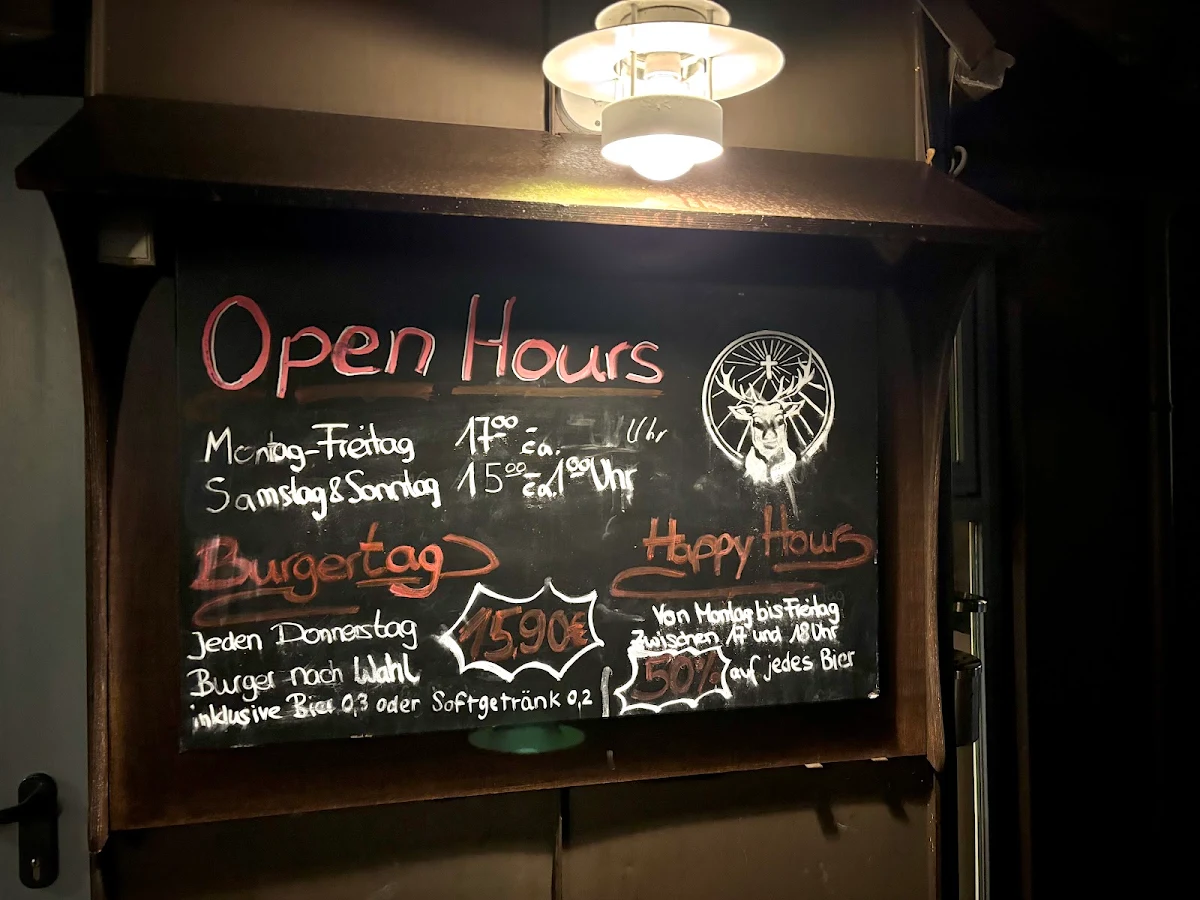 Open Hours
Montag-Freitag 17⁰⁰ ca. Uhr
Samstag & Sonntag 15⁰⁰ ca. 1⁰⁰ Uhr
Burgertag
Jeden Donnerstag
15,90€
Burger nach Wahl
inklusive Bier 0,3 oder Softgetränk 0,2
Happy Hours
Von Montag bis Freitag
Zwischen 17 und 18 Uhr
50% auf jedes Bier